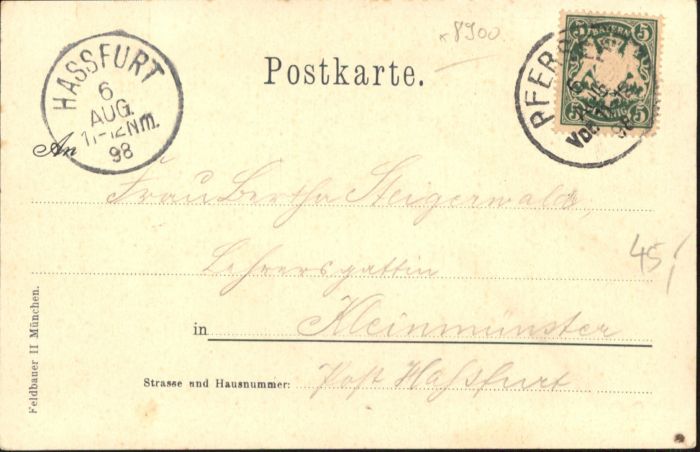 x8900
Postkarte.
BAYERN
5 5
5 5
HASSFURT
6
AUG.
11-12 Nm.
98
PFER
6
98
An
Frau Bertha Steigerwald,
Lehrersgattin
45,
in Kleinmünster
Strasse und Hausnummer: Post Haßfurt
Feldbauer II München.